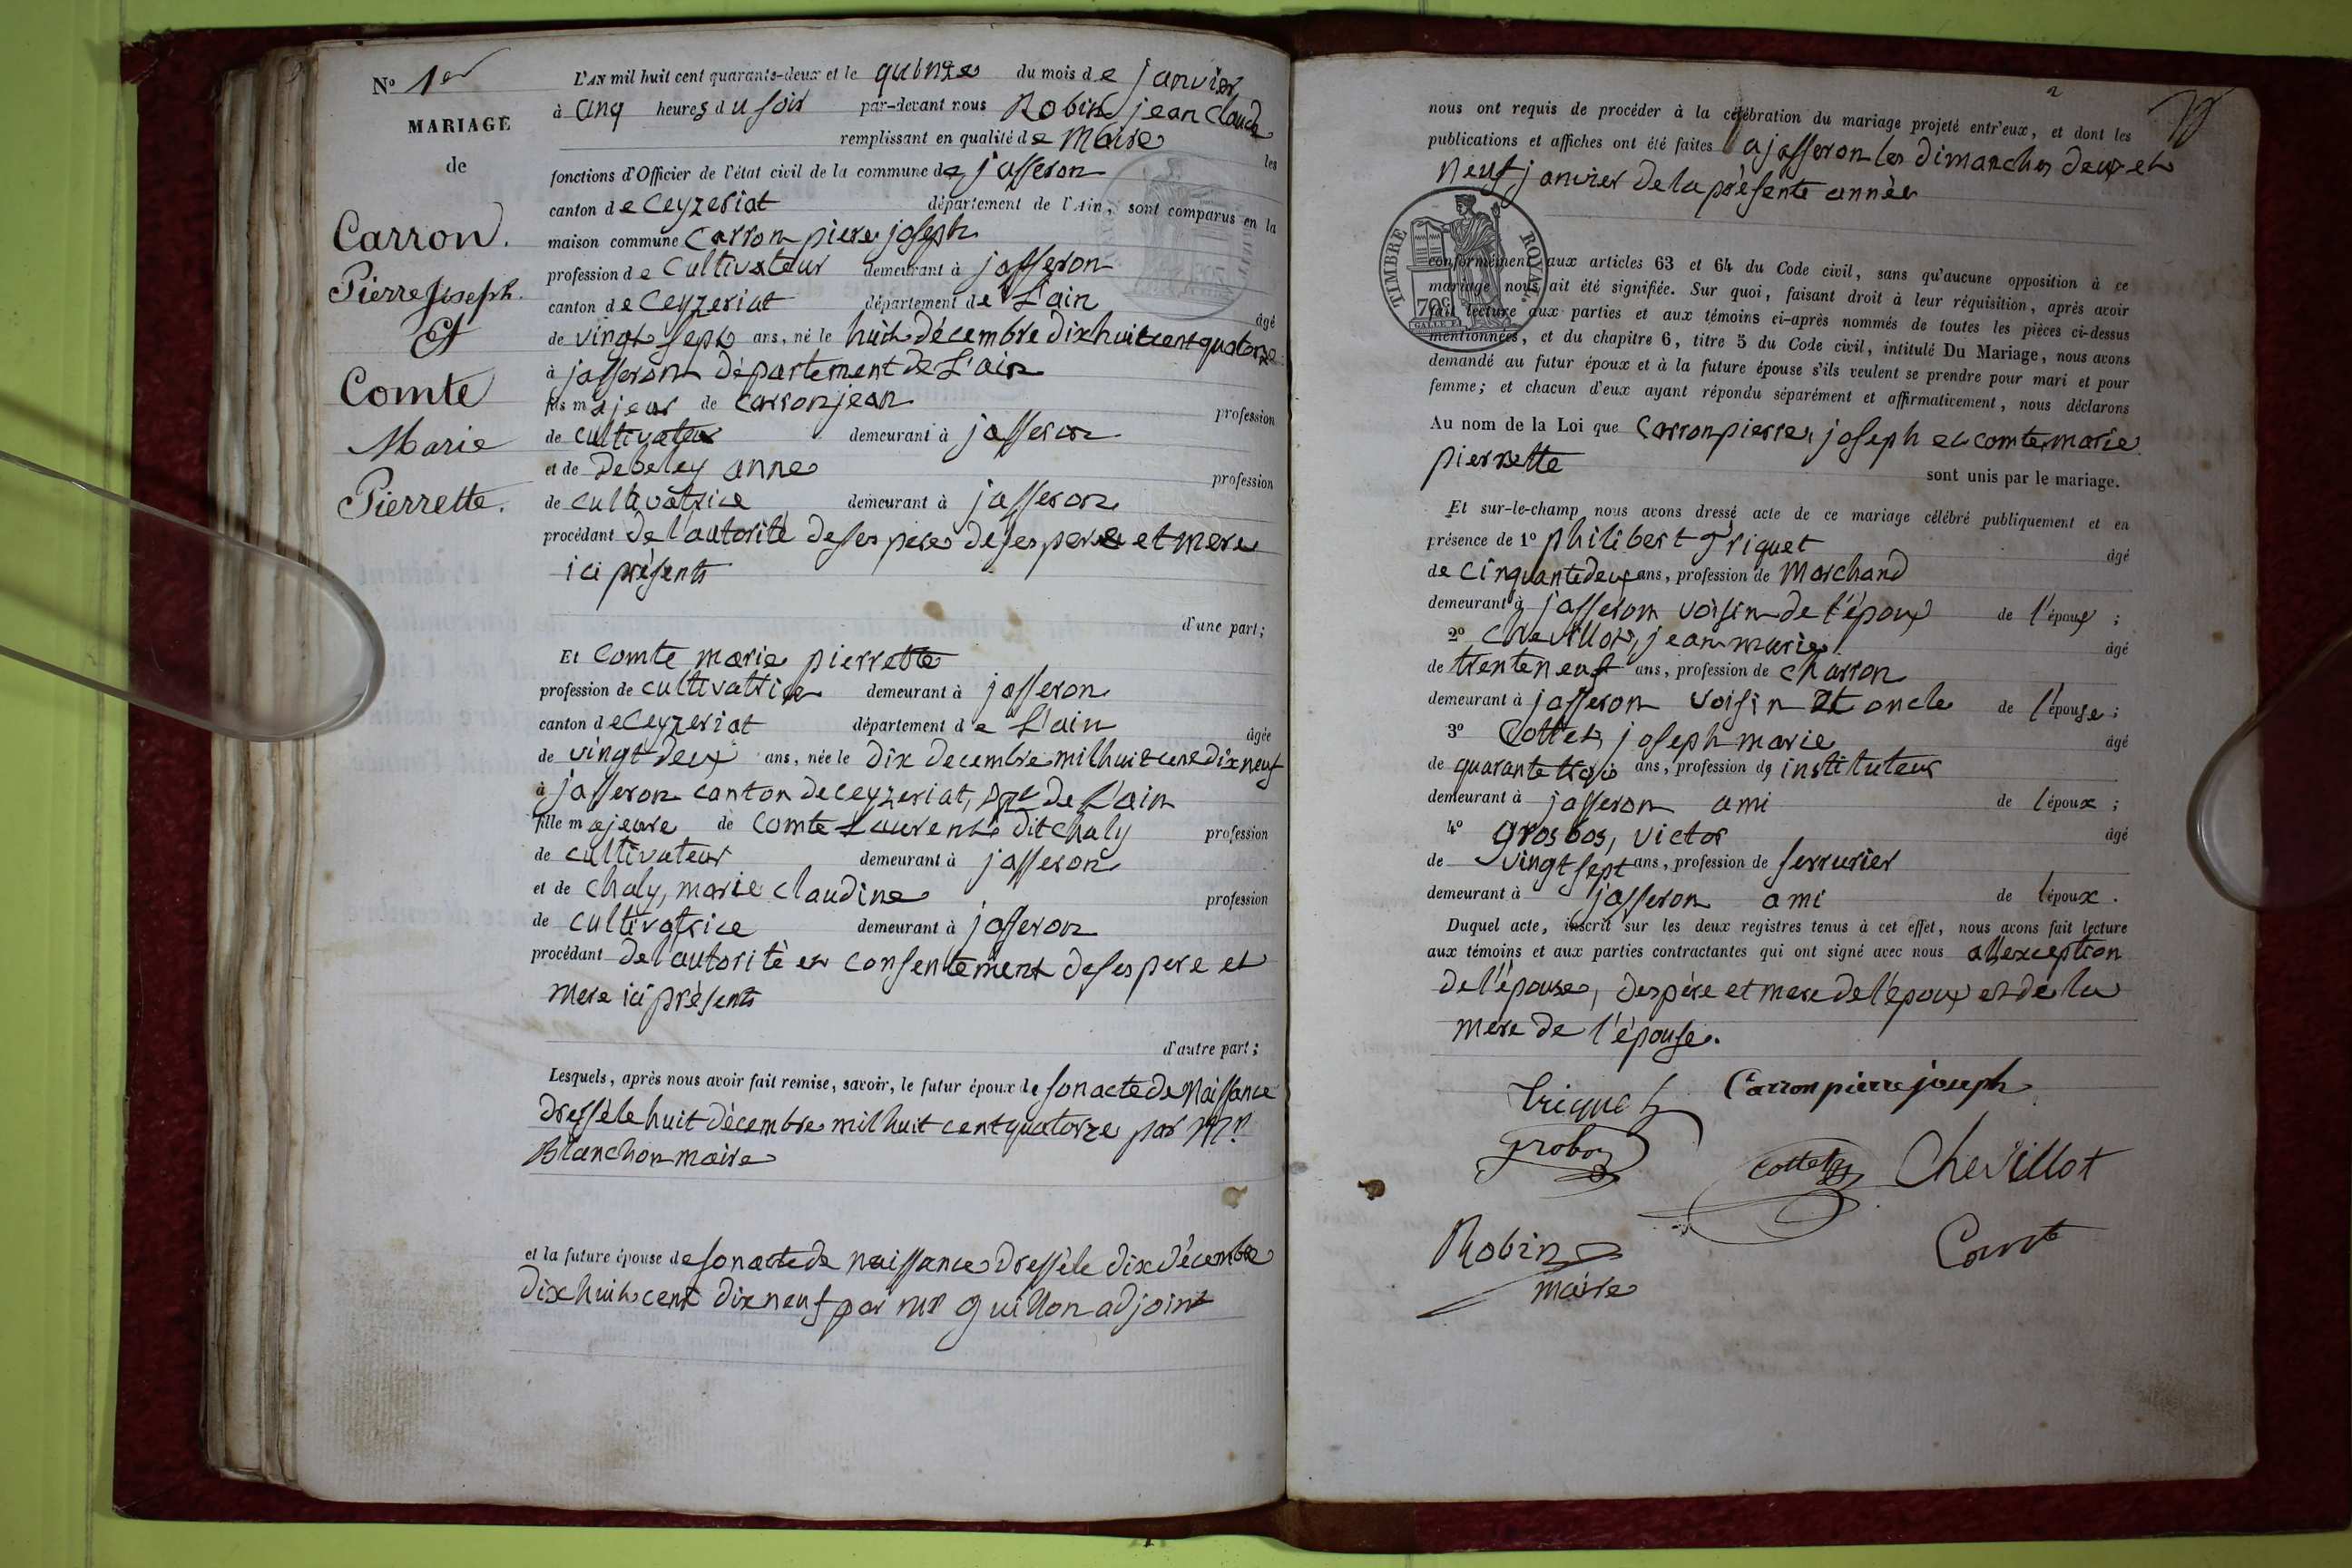 N° 1er
MARIAGE
de
Carron.
Pierre Joseph.
Et
Comte
Marie
Pierrette.
L'AN mil huit cent quarante-deux et le quinze du mois de janvier
à cinq heures du soir par-devant nous Robin jean claude
remplissant en qualité de Maire les
fonctions d'Officier de l'état civil de la commune de jasseron
canton de Ceyzeriat département de l'Ain, sont comparus en la
maison commune Carron piere joseph
profession de Cultivateur demeurant à jasseron
canton de Ceyzeriat département de L'ain âgé
de vingt sept ans, né le huit décembre dix huit cent quatorze
à jasseron département de L'ain
fils majeur de Carron jean profession
de cultivateur demeurant à jasseron
et de Debeley anne profession
de cultivatrice demeurant à jasseron
procédant de l'autorité de ses pere de ses pere et mere
ici présents
d'une part;
Et Comte marie pierrette
profession de cultivatrice demeurant à jasseron
canton de Ceyzeriat département de L'ain âgée
de vingt deux ans, née le dix decembre mil huit cent dix neuf
à jasseron canton de ceyzeriat, Dpt de L'ain
fille majeure de Comte Laurent dit chaly profession
de cultivateur demeurant à jasseron
et de Chaly, marie claudine profession
de cultivatrice demeurant à jasseron
procédant de l'autorité et consentement de ses pere et
mere ici présents
d'autre part;
Lesquels, après nous avoir fait remise, savoir, le futur époux de son acte de Naissance
dressé le huit décembre mil huit cent quatorze par Mr
Blanchon maire
et la future épouse de son acte de naissance dressé le dix décembre
dix huit cent dix neuf par mr guillon adjoint
2
nous ont requis de procéder à la célébration du mariage projeté entr'eux, et dont les
publications et affiches ont été faites a jasseron les dimanches deux et
neuf janvier de la présente année
TIMBRE ROYAL.
70c
conformément aux articles 63 et 64 du Code civil, sans qu'aucune opposition à ce
mariage nous ait été signifiée. Sur quoi, faisant droit à leur réquisition, après avoir
fait lecture aux parties et aux témoins ci-après nommés de toutes les pièces ci-dessus
mentionnées, et du chapitre 6, titre 5 du Code civil, intitulé Du Mariage, nous avons
demandé au futur époux et à la future épouse s'ils veulent se prendre pour mari et pour
femme; et chacun d'eux ayant répondu séparément et affirmativement, nous déclarons
Au nom de la Loi que Carron pierre, joseph et comte marie
pierrette
sont unis par le mariage.
Et sur-le-champ nous avons dressé acte de ce mariage célébré publiquement et en
présence de 1° philibert Triquet âgé
de cinquante deux ans, profession de Marchand
demeurant à jasseron voisin de l'époux de l'époux ;
2° Chevillot, jean marie âgé
de trente neuf ans, profession de charron
demeurant à jasseron voisin et oncle de l'épouse ;
3° Cottet, joseph marie âgé
de quarante trois ans, profession de instituteur
demeurant à jasseron ami de l'époux ;
4° Grosbos, victor âgé
de vingt sept ans, profession de serrurier
demeurant à jasseron ami de l'époux .
Duquel acte, inscrit sur les deux registres tenus à cet effet, nous avons fait lecture
aux témoins et aux parties contractantes qui ont signé avec nous all'exception
de l'épouse, des père et mere de l'époux et de la
mere de l'épouse.
Triquet Carron pierre joseph
Grobos Cottet Chevillot
Robin Comte
maire